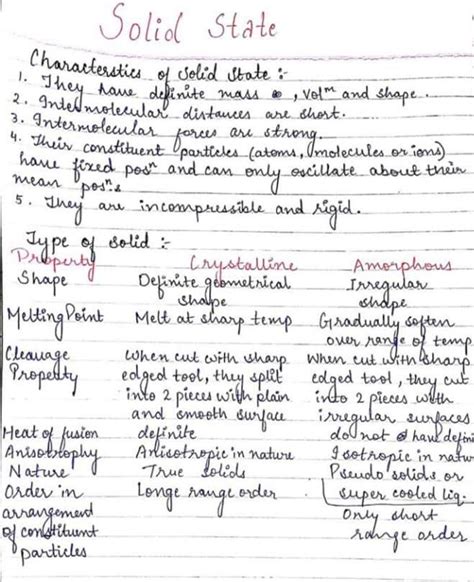 Solid State
Characterstics of Solid State :-
1. They have definite mass , volm and shape .
2. Intermolecular distances are short.
3. Intermolecular forces are strong.
4. Their constituent particles (atoms, molecules or ions)
have fixed posn and can only oscillate about their
mean posns
5. They are incompressible and rigid.
Type of solid :-
Property Crystalline Amorphous
Shape Definite geometrical Irregular
shape shape
Melting Point Melt at sharp temp Gradually soften
over range of temp
Cleavage When cut with sharp When cut with sharp
Property edged tool, they split edged tool, they cut
into 2 pieces with plain into 2 pieces with
and smooth surface irregular surfaces
Heat of fusion definite do not have defini
Anisotrophy Anisotropic in nature Isotropic in natur
Nature True solids Pseudo solids or
Order in Longe range order super cooled liq.
arrangement Only short
of constituent range order
particles